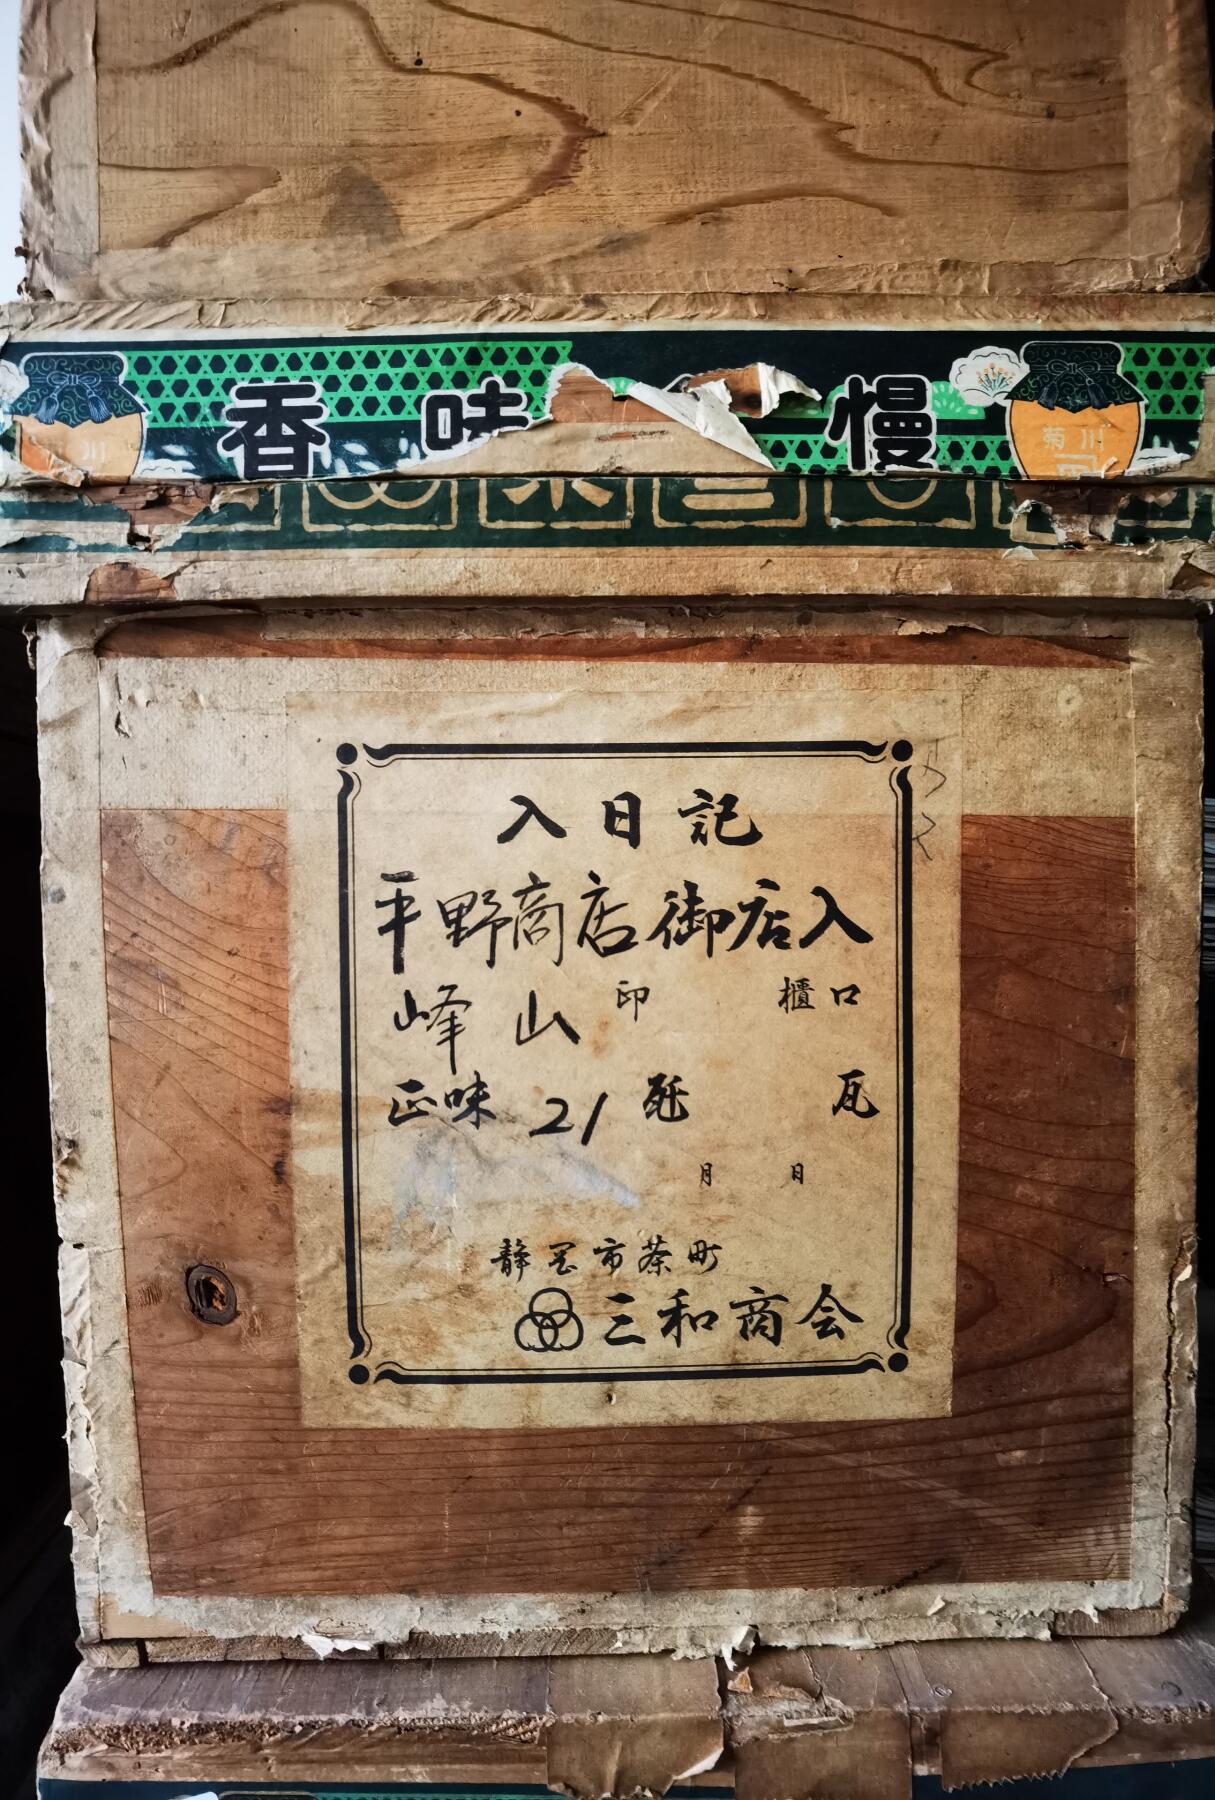 香味 慢
菊川
川
入日記
平野商店御店入
峰山印 櫃口
正味 21 瓩 瓦
月 日
静岡市茶町
三和商会